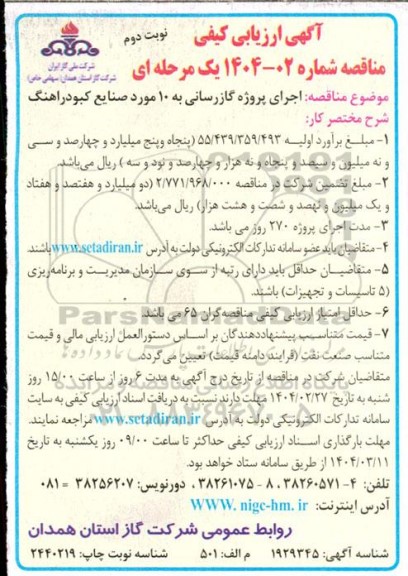 آگهی ارزیابی کیفی
نوبت دوم
مناقصه شماره ۰۲-۱۴۰۴ یک مرحله ای
شرکت ملی گاز ایران
شرکت گاز استان همدان (سهامی خاص)
موضوع مناقصه: اجرای پروژه گازرسانی به ۱۰ مورد صنایع کبودراهنگ
شرح مختصر کار:
۱- مبلغ برآورد اولیه ۵۵/۴۳۹/۳۵۹/۴۹۳ (پنجاه وپنج میلیارد و چهارصد و سی
و نه میلیون و سیصد و پنجاه و نه هزار و چهارصد و نود و سه ) ریال می‌باشد.
۲- مبلغ تضمین شرکت در مناقصه ۲/۷۷۱/۹۶۸/۰۰۰ (دو میلیارد و هفتصد و هفتاد
و یک میلیون و نهصد و شصت و هشت هزار) ریال می‌باشد.
۳- مدت اجرای پروژه ۲۷۰ روز می باشد.
۴- متقاضیان باید عضو سامانه تدارکات الکترونیکی دولت به آدرس www.setadiran.ir باشند.
۵- متقاضیان حداقل باید دارای رتبه از سوی سازمان مدیریت و برنامه‌ریزی
(۵ تاسیسات و تجهیزات) باشند.
۶- حداقل امتیاز ارزیابی کیفی مناقصه‌گران ۶۵ می باشد.
۷- قیمت متناسب پیشنهاددهندگان بر اساس دستورالعمل ارزیابی مالی و قیمت
متناسب صنعت نفت (فرآیند دامنه قیمت) تعیین می‌گردد.
متقاضیان شرکت در مناقصه از تاریخ درج آگهی به مدت ۶ روز از ساعت ۱۵/۰۰ روز
شنبه به تاریخ ۱۴۰۴/۰۲/۲۷ مهلت دارند نسبت به دریافت اسناد ارزیابی کیفی به سایت
سامانه تدارکات الکترونیکی دولت به آدرس www.setadiran.ir مراجعه نمایند.
مهلت بارگذاری اسناد ارزیابی کیفی حداکثر تا ساعت ۰۹/۰۰ روز یکشنبه به تاریخ
۱۴۰۴/۰۳/۱۱ از طریق سامانه ستاد خواهد بود.
تلفن: ۴-۳۸۲۶۰۵۷۱ ، ۸-۳۸۲۶۱۰۷۵ ، دورنویس: ۳۸۲۵۶۲۰۷ - ۰۸۱
آدرس اینترنت: WWW. nigc-hm. ir
روابط عمومی شرکت گاز استان همدان
شناسه آگهی: ۱۹۲۹۳۴۵ م الف: ۵۰۱ شناسه نوبت چاپ: ۲۴۴۰۲۱۹